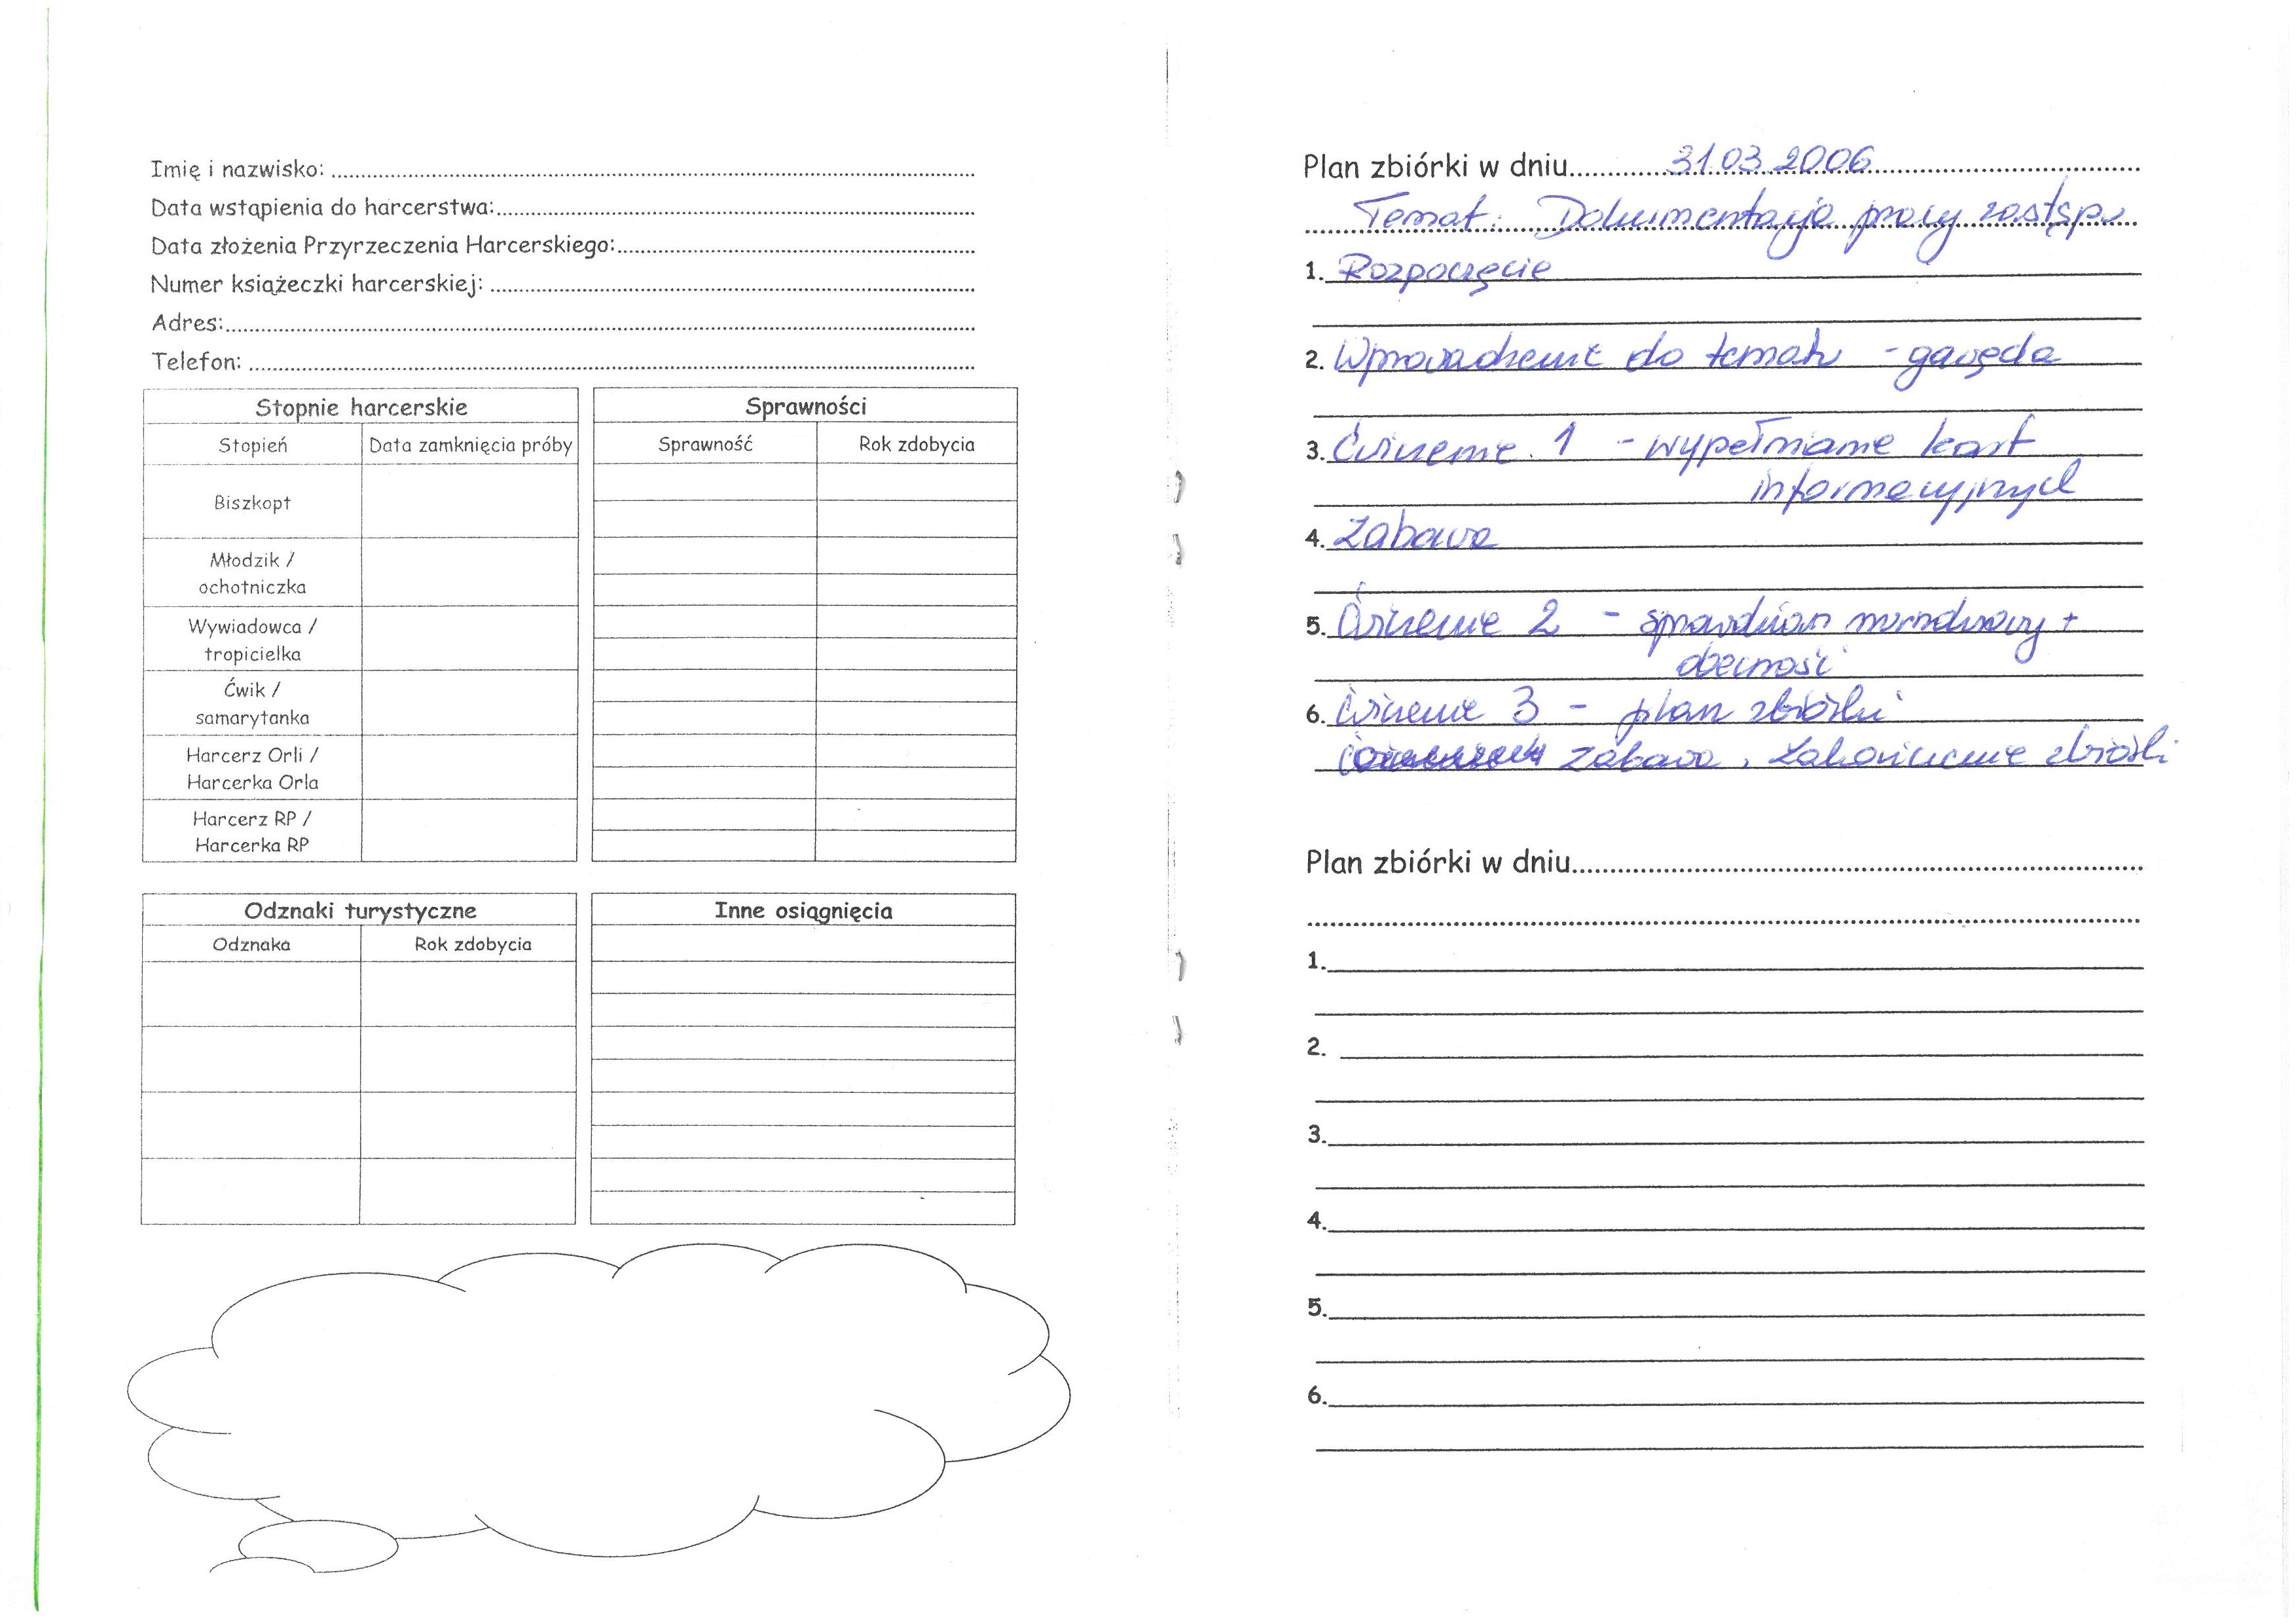 Imię i nazwisko:
Data wstąpienia do harcerstwa:
Data złożenia Przyrzeczenia Harcerskiego:
Numer książeczki harcerskiej:
Adres:
Telefon:
Stopnie harcerskie
Stopień Data zamknięcia próby
Biszkopt
Młodzik /
ochotniczka
Wywiadowca /
tropicielka
Ćwik /
samarytanka
Harcerz Orli /
Harcerka Orla
Harcerz RP /
Harcerka RP
Sprawności
Sprawność Rok zdobycia
Odznaki turystyczne
Odznaka Rok zdobycia
Inne osiągnięcia
Plan zbiórki w dniu 31.03.2006
Temat: Dokumentacja pracy zastępu
1. Rozpoczęcie
2. Wprowadzenie do tematu - gawęda
3. Ćwiczenie 1 - wypełnianie kart
informacyjnych
4. Zabawa
5. Ćwiczenie 2 - sprawdzian mundurowy +
obecność
6. Ćwiczenie 3 - plan zbiórki
zabawa, zakończenie zbiórki
Plan zbiórki w dniu
1.
2.
3.
4.
5.
6.